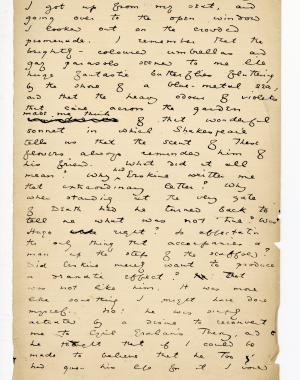 I got up from my seat, and
going over to the open window
I looked out on the crowded
promenade. I remember that the
brightly-coloured umbrellas and
gay parasols seemed to me like
huge fantastic butterflies fluttering
by the shore of a blue-metal sea,
and that the heavy odour of violets
that came across the garden
made me think
of that wonderful
sonnet in which Shakespeare
tells us that the scent of these
flowers always reminded him of
his friend. What did it all
mean? Why had Erskine written me
that extraordinary letter? Why
when standing at the very gate
of Death had he turned back to
tell me what was not true? Was
Hugo right? Is affectation
the only thing that accompanies a
man up the steps of the scaffold?
Did Erskine merely want to produce
a dramatic effect? That
was not like him. It was more
like something I might have done
myself. No: he was simply
actuated by a desire to reconvert
me to Cyril Graham's Theory, and
he thought that if I could be
made to believe that he too
had given his life for it I would